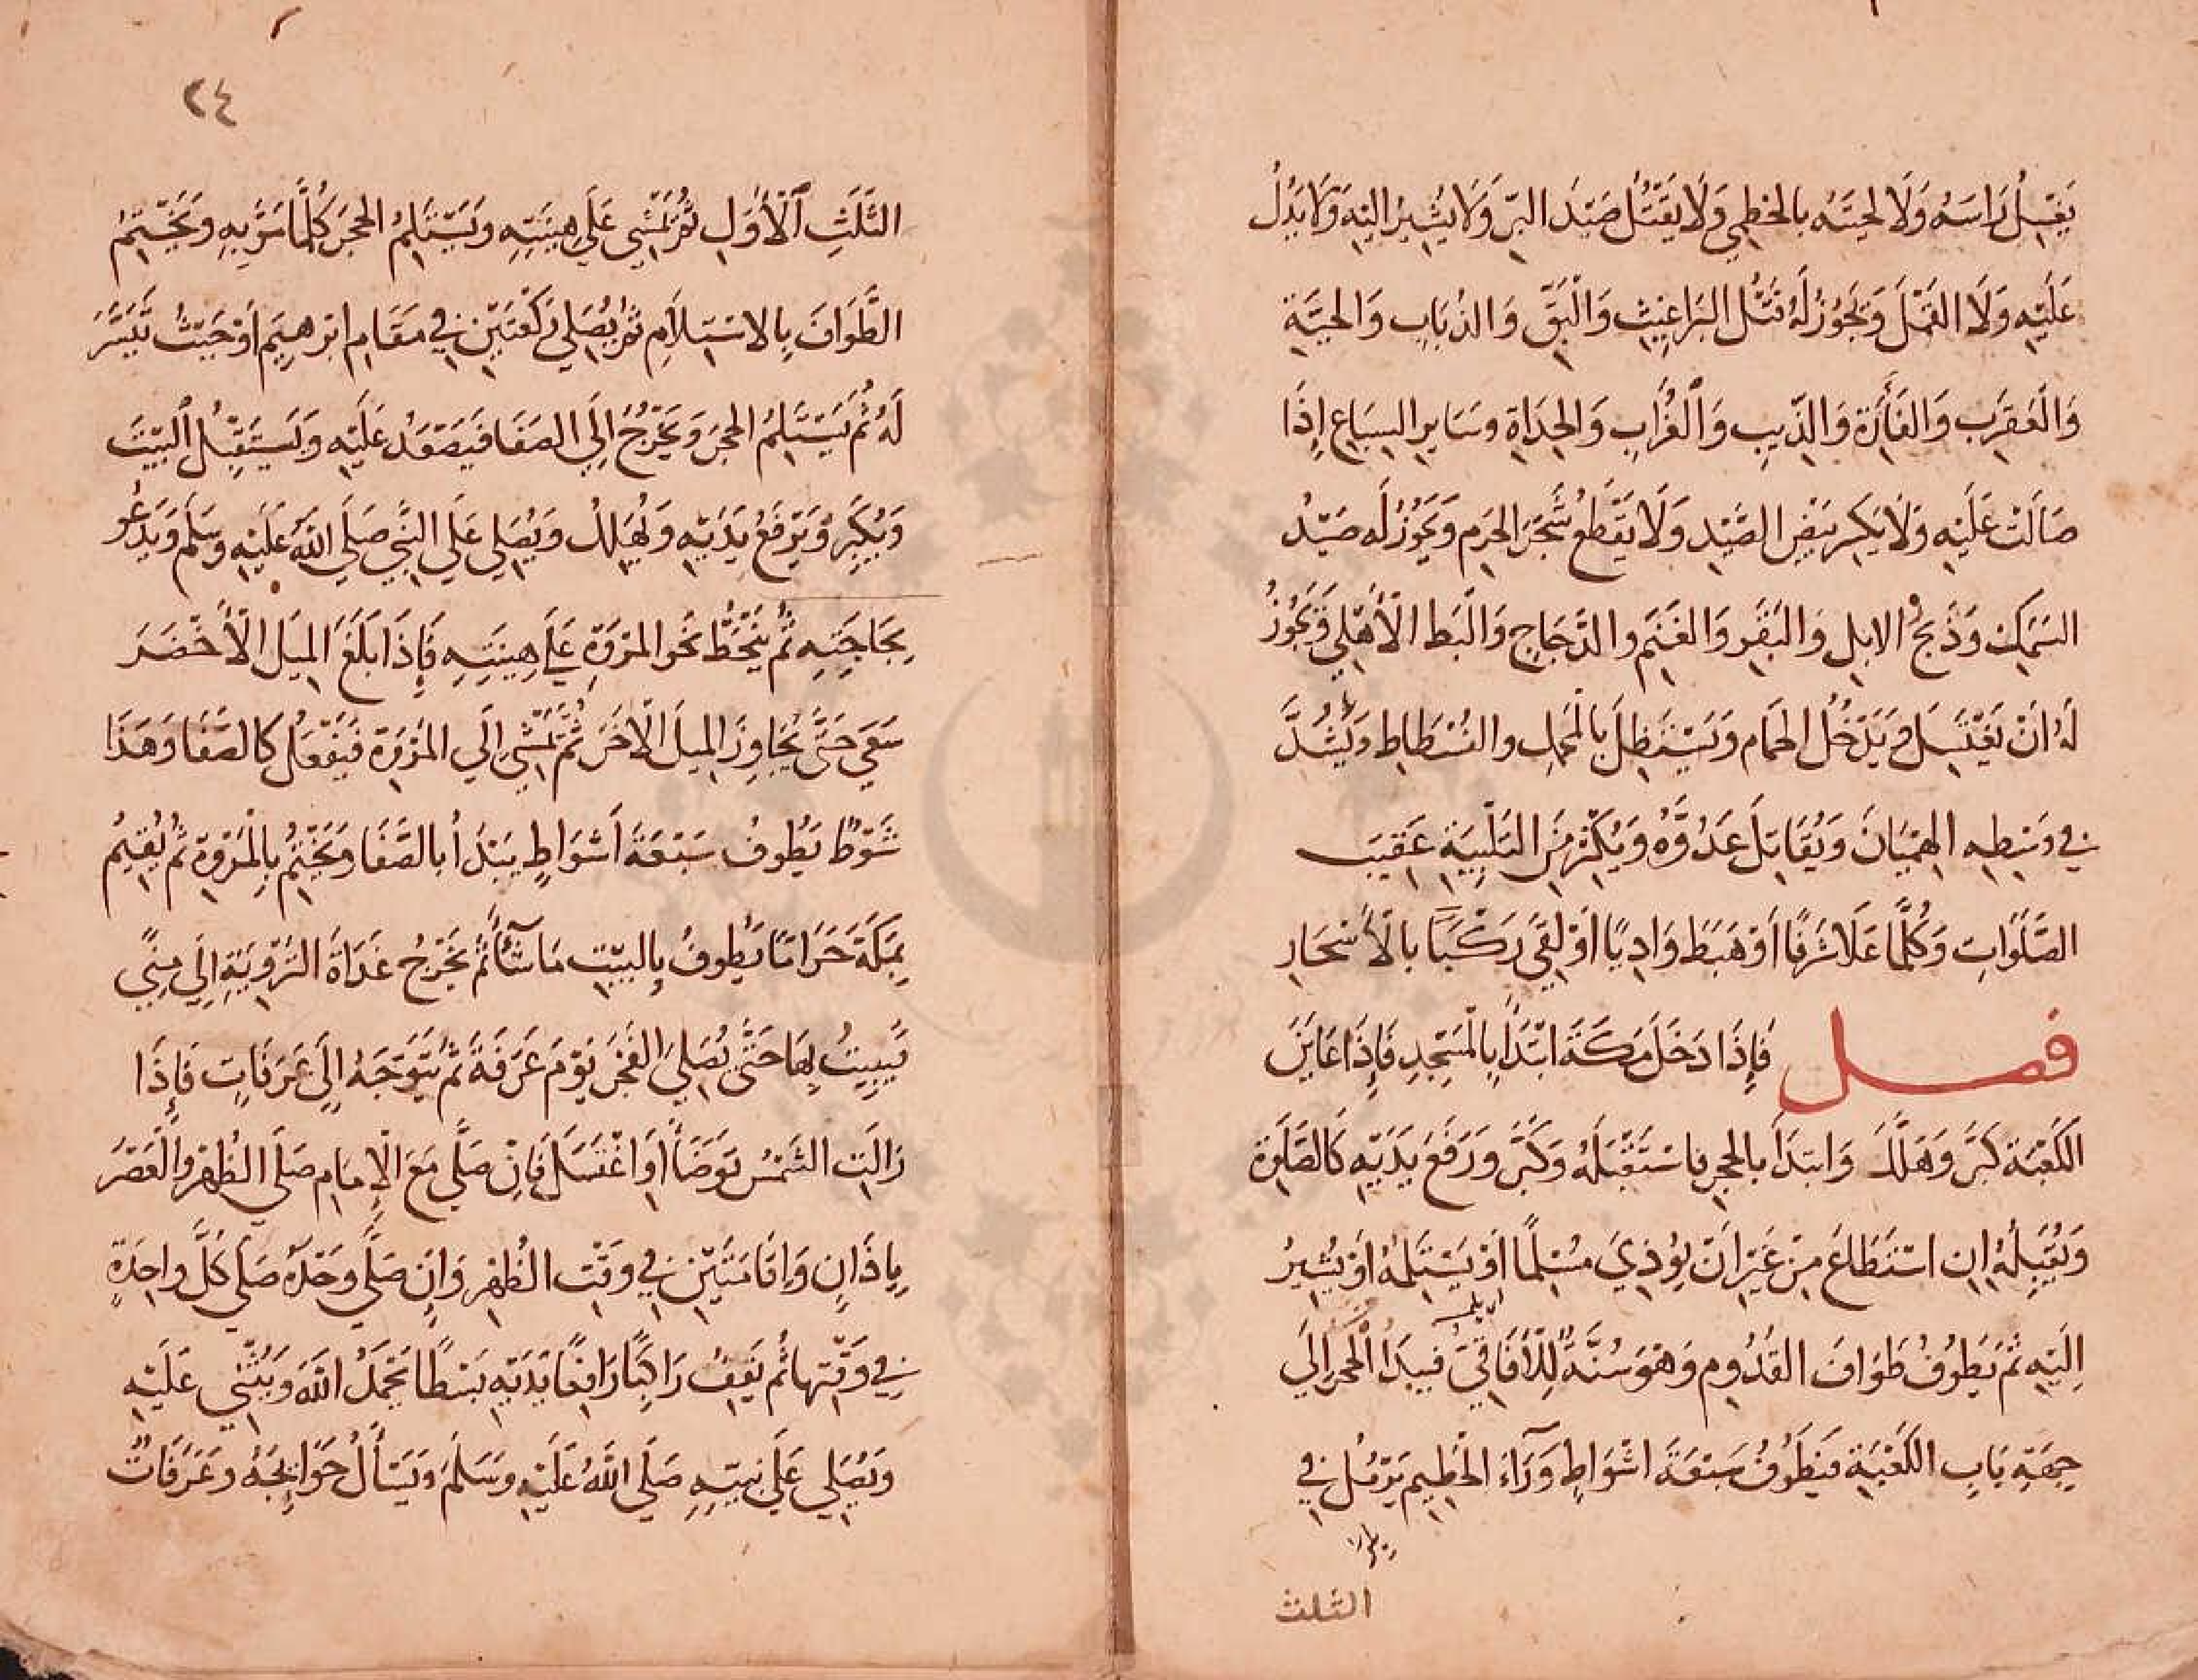 يَغْسِلُ رَاسَهُ وَلَا لِحيَتَهُ بالخطمي وَلَا يَقْتُل صَيْدَ البرّ وَلَا يُشِيرُ اليْهِ وَلَا يَدُلُ
عَلَيْهِ وَلَا القَمْلَ وَيَجُوزُ لَهُ قَتْل البَرَاغِيثِ وَالْبَقِّ وَالذُبَابِ وَالحَيَّةِ
وَالْعَقْرَبِ وَالفَأرَةِ وَالذّيبِ وَالْغُرَابِ وَالحِدَاةِ وسَايرِ السِبَاعِ إِذَا
صَالَتْ عَلَيْهِ وَلَا يَكسِر بَيْضَ الصَّيْدِ وَلَا يَقْطَعُ شَجَرَ الحَرَم وَيَجُوزُ لَه صَيْدُ
السَمَكِ وَذَبحُ الابلِ وَالبَقَرِ وَالغَنَمِ والدَّجَاجِ وَالْبَط الْأَهْلِي وَيَجُوزُ
لَهُ انْ يَغْتَسِلَ وَيَدْخُلَ الحَمَام وَيَسْتَظِلَ بِالمَحْمِلِ والفُسْطَاطِ وَيَشُدَّ
في وَسْطِهِ الهِمْيَانَ وَيُقَاتِلَ عَدُوَّهُ وَيُكْثِرُ مِنَ التَلْبِيَةِ عَقِيبَ
الصَّلَوَاتِ وَكُلَّمَا عَلَا شَرَفًا أَوْ هَبَطَ وَادِيًا أوْ لَقِيَ رَكْبًا بالْأَسْحَارِ
فصل فَإِذَا دَخَلَ مَكَّةَ ابْتَدَأَ بِالْمَسْجِدِ فَإِذَا عَايَنَ
الكَعْبَةَ كَبَّرَ وَهَلَّلَ وَابتَدَأَ بالحَجرِ فاسْتَقْبَلَهُ وَكَبَّرَ وَرَفَعَ يَدَيْهِ كَالصَّلَوةِ
وَيُقَبِلُهُ إِنِ اسْتَطَاعَ مِنْ غَيْرِ انْ يُوذِيَ مُسْلِمًا أوْ يَسْتَلِمَهُ أوْ يُشِيرُ
اِلَيْهِ ثُمَّ يَطُوفُ طَوَافَ القُدُومِ وَهُوَ سُنَّةٌ لِلْأفَاقِيّ فيبدَأ الحجر إِلَي
جِهَةِ بَابِ الكَعْبَةِ فيَطُوفُ سَبْعَةَ اشْوَاطٍ وَرَآءَ الحَطِيمِ يَرْمُل في
الثلث
٢٤
الثَّلَثِ الْأَوَلِ ثُمَّ يَمْشِي عَلَي هِينَتِهِ وَيَسْتَلِمُ الحجَرَ كُلَّمَا مَرَّ بِهِ وَيَخْتِمُ
الطَّوَافَ بِالاسْتِلَامِ ثمَّ يُصَلِي رَكْعَتَيْنِ فِي مَقَامِ ابْرهِيمَ أَوْ حَيْثُ تَيَسَّرَ
لَهُ ثُمَّ يَسْتَلِمُ الحجَرَ وَيَخْرُجُ إِلَي الصَفَا فَيَصْعَدُ عَلَيْهِ وَيَسْتَقْبِلُ البَيْتَ
وَيُكَبِّرُ وَيَرْفَعُ يَدَيْهِ وَيُهَلِلُ وَيُصَلِي عَلَي النَّبِيّ صَلَي اللَّهُ عَلَيْهِ وسَلّم وَيَدْعُو
بِحَاجَتِهِ ثُمَّ يَنْحَطُّ نَحوَ المَرْوَةِ عَلَي هِينَتِهِ فَإِذَا بَلَغَ المِيلَ الأَخْضَرَ
سَعَي حَتَّي يُجَاوِزَ المِيلَ الْآخَرَ ثُمَّ يَمْشِي إلَي المَرْوَةِ فَيَفْعَل كالصَّفَا وَهَذَا
شَوْطٌ يَطُوفُ سَبْعَةَ أَشْوَاطٍ يَبْدَأُ بالصَّفَا وَيَخْتِمُ بِالْمَرْوَةِ ثُمَّ يُقِيمُ
بِمَكَّةَ حَرَامًا يَطُوفُ بِالبَيْتِ مَا شَآءَ ثُمَّ يَخْرُجُ غَدَاةَ التَّرْوِيَةِ إِلَي مِنًي
يَبِيتُ بِهَا حَتَّي يُصَلِي الفَجْرَ يَوْمَ عَرَفَةَ ثُمَّ يَتَوَجَهُ إِلَي عَرَفَاتِ فَإِذَا
زَالَتِ الشَمْسُ تَوَضَأَ أَوِ اغْتَسَلَ فَإِنْ صَلَّي مَعَ الْإِمَام صَلَي الظُهْرَ وَالْعَصْرَ
بِاذَانٍ وَإِقَامَتَيْنِ فِي وَقْتِ الظُهْرِ وَإِنْ صَلَّي وَحْدَهُ صَلَي كُلَّ وَاحِدَةٍ
فِي وَقْتِهَا ثُمَّ يَقِفُ رَاكِبًا رَافِعًا يَدَيْهِ بَسْطًا يَحْمَدُ اللَّهَ وَيُثْنِي عَلَيْهِ
وَيُصَلِي عَلَي نَبِيّهِ صَلَي اللَّهُ عَلَيْهِ وسَلّمَ وَيَسْأَلُ حَوَايِجَهُ وعَرَفَاتٌ